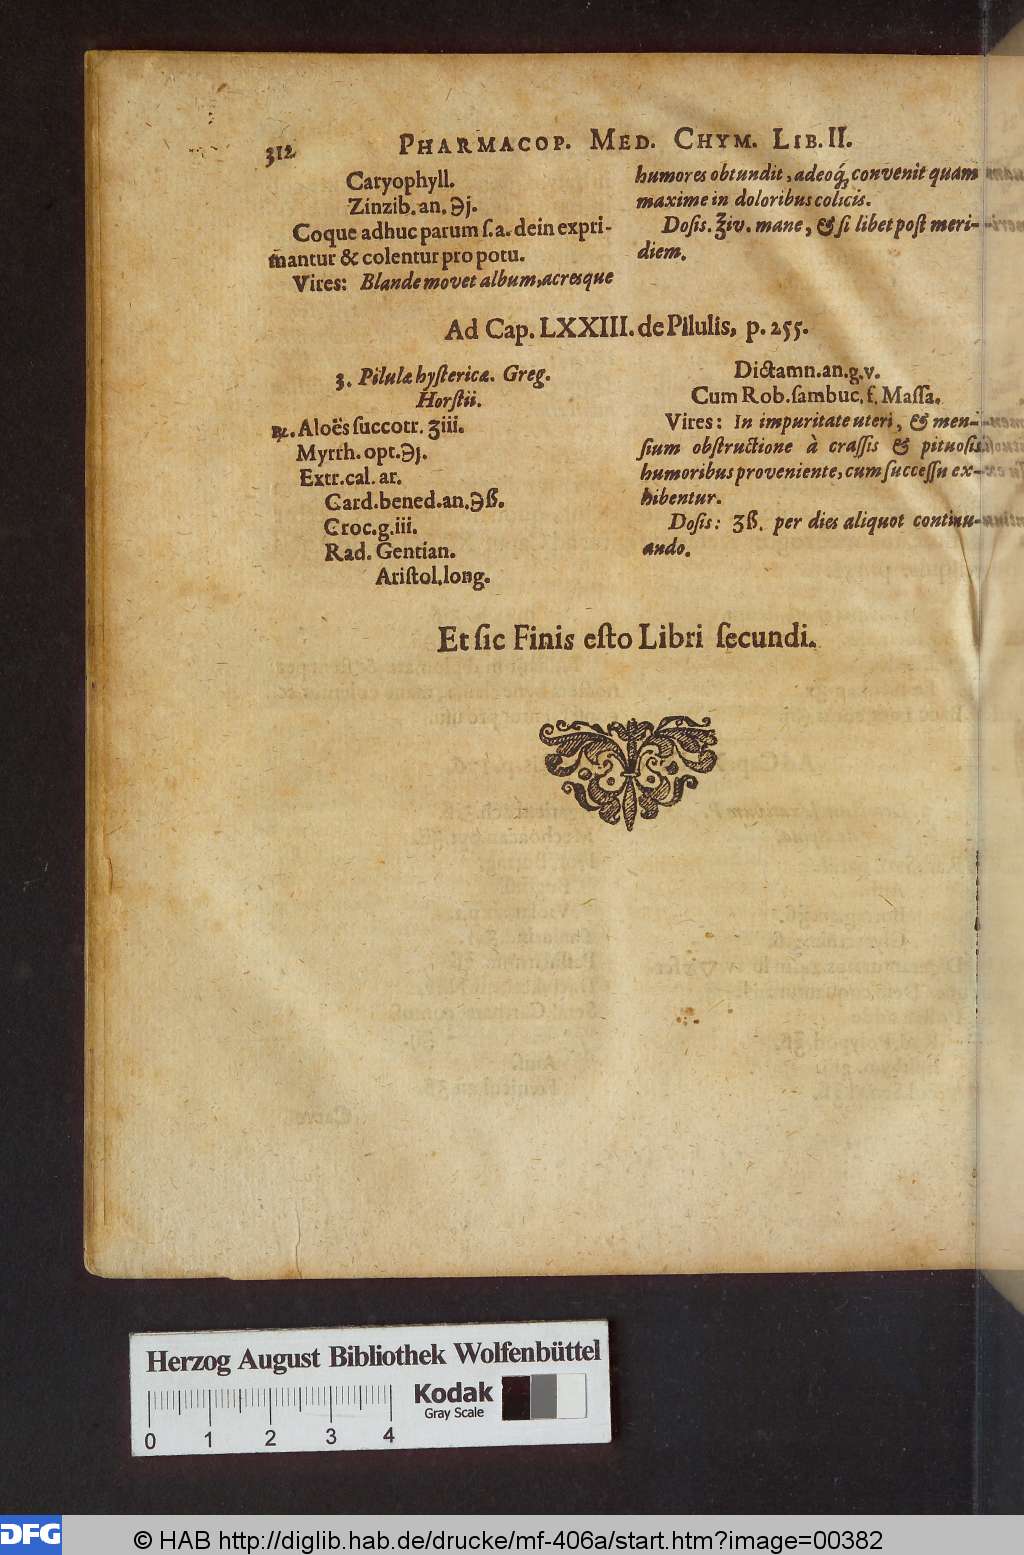 312 PHARMACOP. MED. CHYM. LIB. II.
Caryophyll.
Zinzib. an. ℈j.
Coque adhuc parum ſ. a. dein expri-
mantur & colentur pro potu.
Vires: Blande movet album, acresque
humores obtundit, adeoq́; convenit quam
maxime in doloribus colicis.
Doſis. ℥iv. mane, & ſi libet poſt meri-
diem.
Ad Cap. LXXIII. de Pilulis, p. 255.
3. Pilulæ hyſtericæ. Greg.
Horſtii.
℞. Aloës ſuccotr. ʒiii.
Myrrh. opt. ℈j.
Extr. cal. ar.
Card. bened. an. ℈ß.
Croc. g. iii.
Rad. Gentian.
Ariſtol. long.
Dictamn. an. g. v.
Cum Rob. ſambuc. f. Maſſa.
Vires: In impuritate uteri, & men-
ſium obſtructione à craſſis & pituoſis
humoribus proveniente, cum ſucceſſu ex-
hibentur.
Doſis: ʒß. per dies aliquot continu-
ando.
Et ſic Finis eſto Libri ſecundi.
Herzog August Bibliothek Wolfenbüttel
Kodak
Gray Scale
0 1 2 3 4
DFG
© HAB http://diglib.hab.de/drucke/mf-406a/start.htm?image=00382